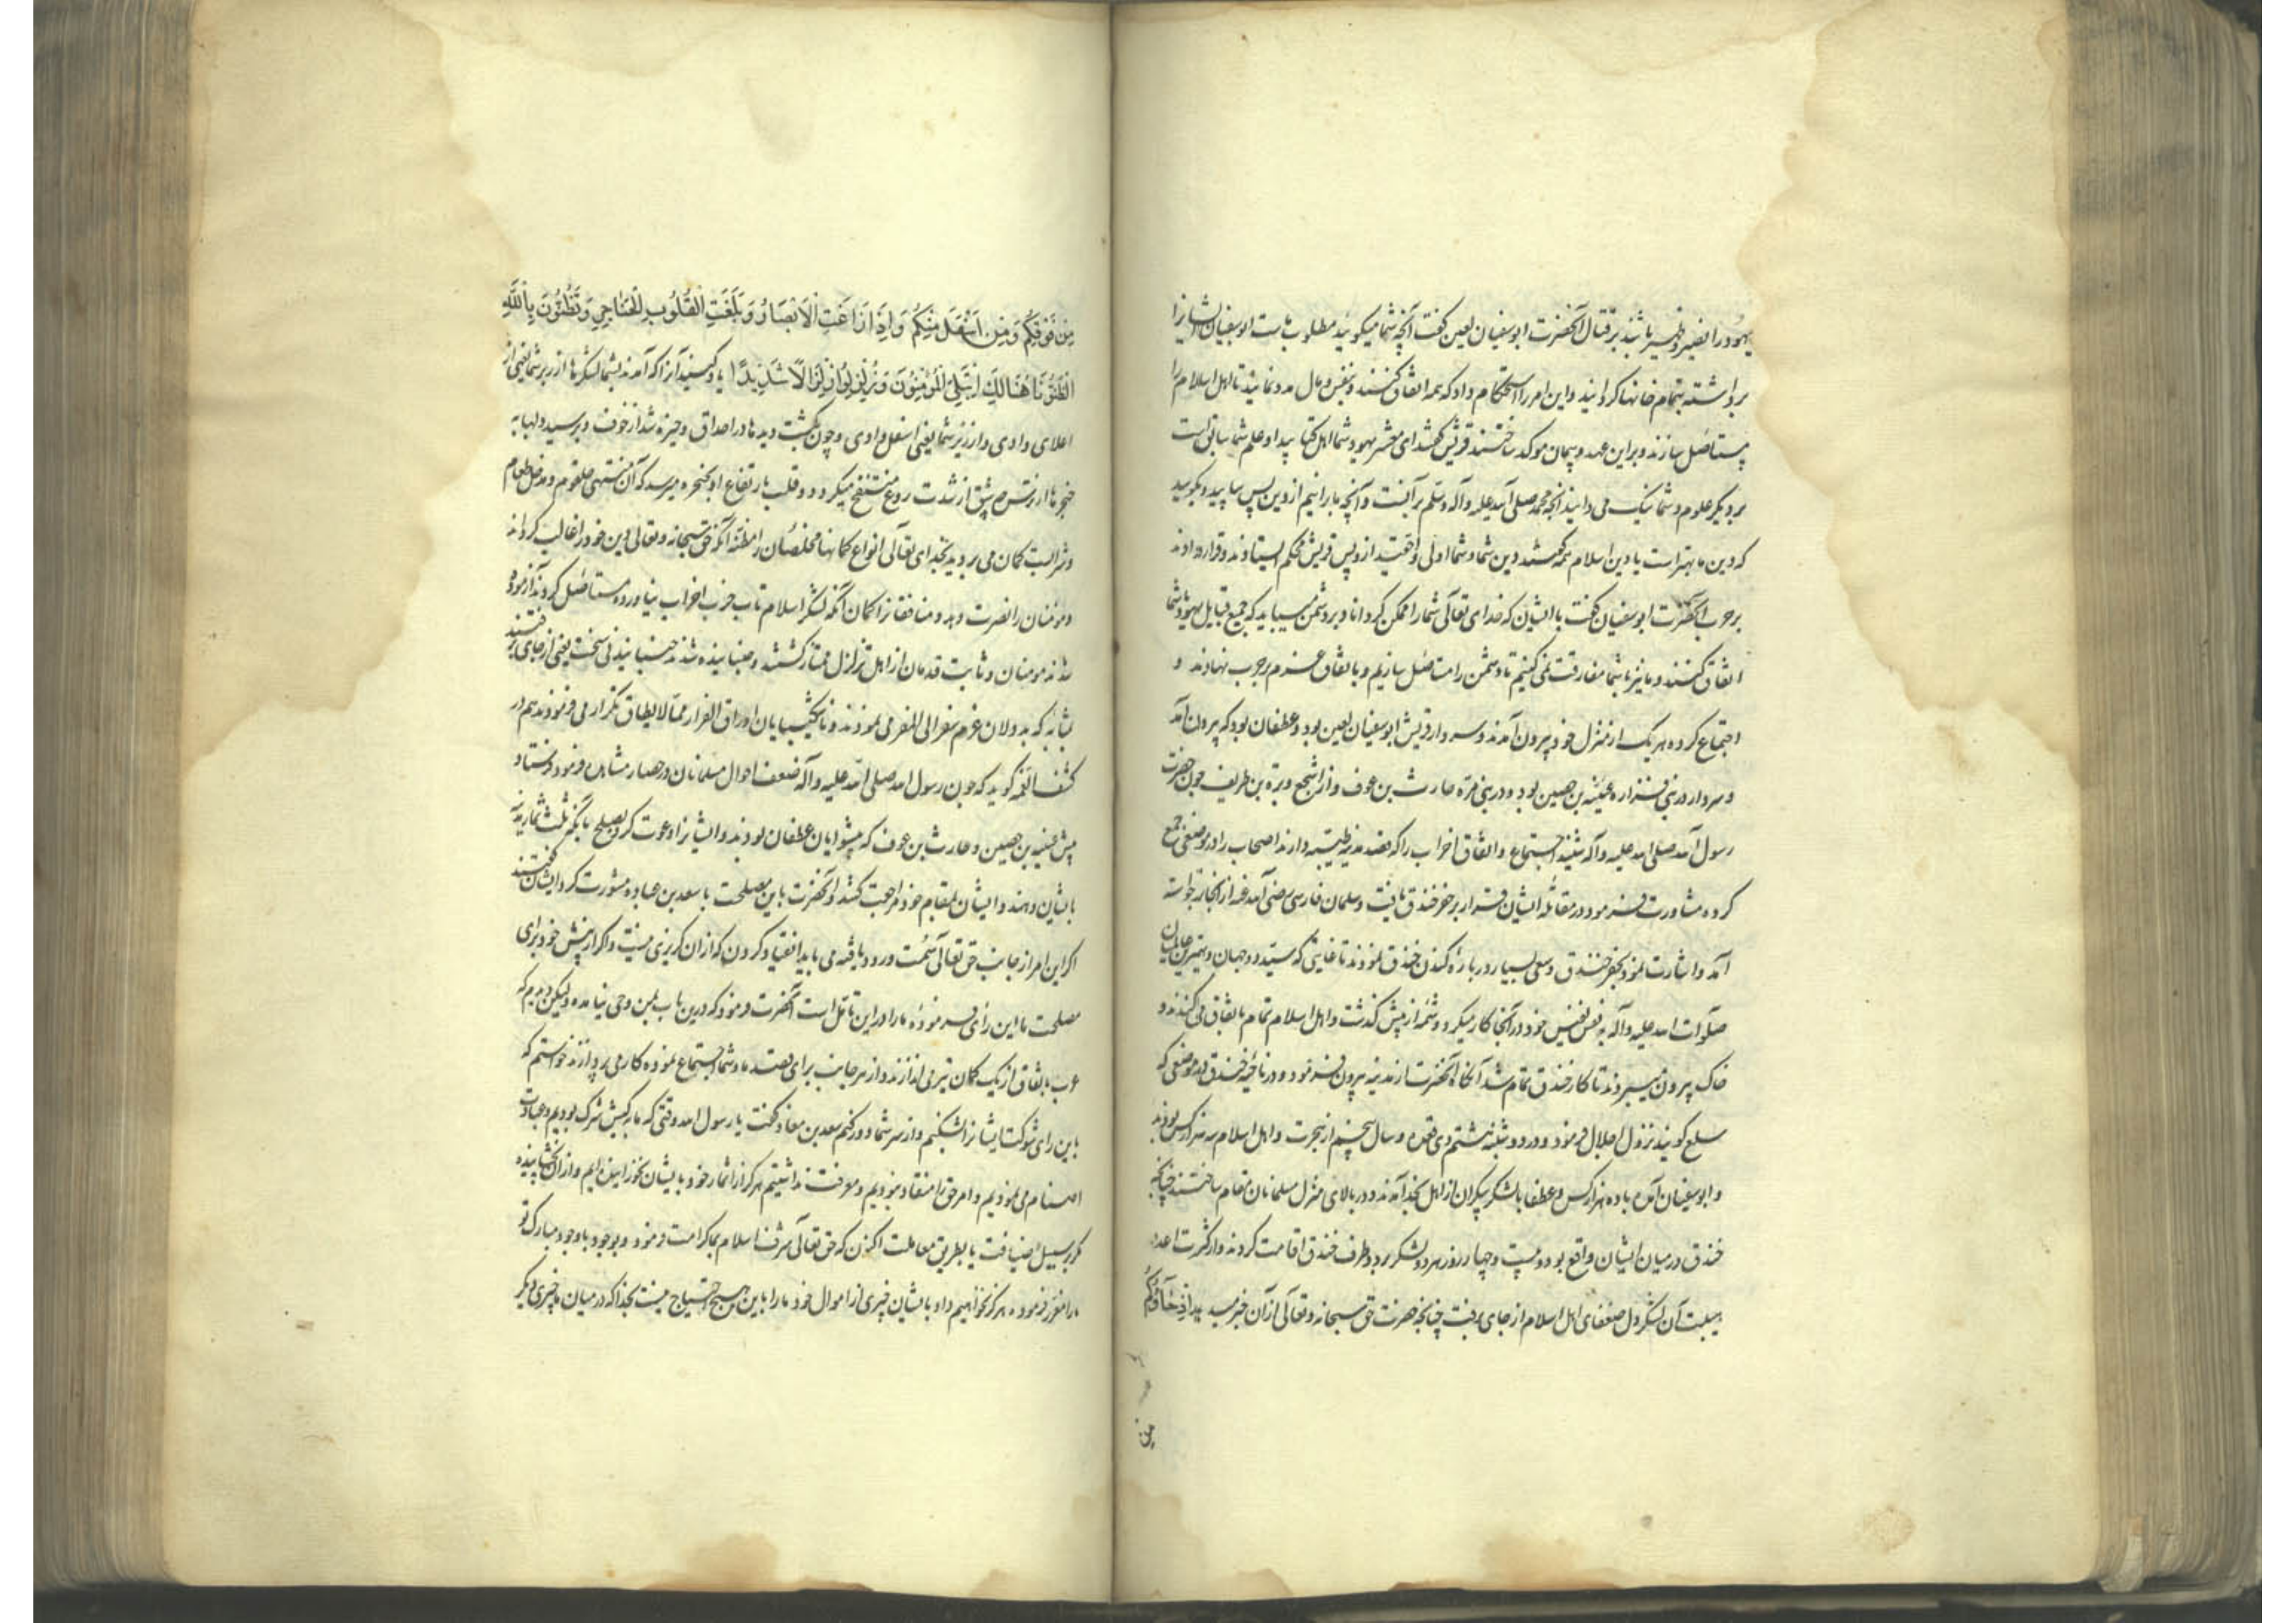 یهود را نصیر و ظهیر باشند بر قتال آنحضرت ابوسفیان لعین گفت آنچه شما میگوئید مطلوب ماست ابوسفیان ایشانرا
برداشته بتمام خانها گردانید و این امر را استحکام داد که همه اتفاق کنند و بنفس و مال مدد نمایند تا اهل اسلام را
مستاصل سازند و براین عهد و پیمان موکد ساختند قریش گفتند ای معشر یهود شما اهل کتابید و علم شما سابق است
بر دیگر علوم و شما نیک می دانید آنچه محمد صلی الله علیه و آله وسلم بر آنست و آنچه ما برانیم از دین پس بیایید و بگویید
که دین ما بهتر است یا دین اسلام همه گفتند دین شما و شما اولی و احقیت از و پس قریش محکم ایستادند و قرار دادند
بر حرب آنحضرت ابوسفیان گفت با ایشان که خدای تعالی شما را ممکن گرداناد بر دشمن میباید که جمیع قبایل یهود با شما
اتفاق کنند و ما نیز با شما مفارقت نمی کنیم تا دشمن را مستاصل سازیم و باتفاق عزم بر حرب نهادند و
اجتماع کرده هر یک از منزل خود بیرون آمدند و سردار قریش ابوسفیان لعین بود و عطفان بود که بیرون آمد
و سردار در بنی فزاره عیینه بن حصین بود و در بنی مره حارث بن عوف و از اشجع وبره بن طریف چون حضرت
رسول الله صلی الله علیه و آله شنید اجتماع و اتفاق احزاب را که قصد مدینه طیبه دارند اصحاب را در موضعی جمع
کرده مشاورت فرمود در مقاتله ایشان قرار بر حفر خندق یافت و سلمان فارسی رضی الله عنه از آنجا برخواسته
آمد و اشارت نمود بحفر خندق و سعی بسیار در باره کندن خندق نمودند تا غایتی که سید دو جهان و بهترین عالمیان
صلوات الله علیه و آله به نفس نفیس خود در آنجا کار میکرد و شمه از پیش گذشت و اهل اسلام تمام باتفاق می کندند و
خاک بیرون میبردند تا کار خندق تمام شد آنکاه آنحضرت از مدینه بیرون فرمود و در ناحیه خندق در موضعی که
سلع گویند نزول اجلال فرمود و در دوشنبه هشتم ذی قعده و سال پنجم از هجرت و اهل اسلام سه هزار کس بودند
و ابوسفیان آمده با ده هزار کس و عطفا با لشکر بیکران از اهل نجد آمدند و در بالای منزل مسلمانان مقام ساختند چنانچه
خندق در میان ایشان واقع بود و بیست و چهار روز هر دو لشکر بر دو طرف خندق اقامت کردند و از کثرت اعدا و
هیبت آن لشکر دل ضعفای اهل اسلام از جای برفت چنانچه حضرت حق سبحانه و تعالی از آن خبر میدهد اذ جاؤکم
من
مِن فَوقِکُم وَمِن اَسفَلَ مِنکُم وَاِذ زَاغَتِ الاَبصَارُ وَبَلَغَتِ القُلُوبُ الحَنَاجِرَ وَتَظُنُّونَ بِاللّٰهِ
الظُّنُونَا هُنَالِكَ ابتُلِیَ المُؤمِنُونَ وَزُلزِلُوا زِلزَالًا شَدِیدًا یاد کنید آنرا که آمدند بشما لشکرها از زبر شما یعنی از
اعلای وادی و از زیر شما یعنی اسفل وادی و چون بگشت دیدها در احداق و خیره شد از خوف و برسید دلها به
حنجرها از ترس چه شق از شدت روع منتفخ میگردد و قلب بارتفاع او بحنجره میرسد که آن منتهی حلقوم و مدخل طعام
و شرابست گمان می بردید بخدای تعالی انواع گمانها مخلصان را مظنه آنکه حق سبحانه و تعالی دین خود را غالب گرداند
و مومنان را نصرت دهد و منافقانرا گمان آنکه لشکر اسلام تاب حرب احزاب نیاورده مستاصل گردند آزموده
شدند مومنان و ثابت قدمان از اهل تزلزل ممتاز گشتند و جنبانیده شدند جنبانیدنی سخت یعنی از جای برفتند
بمثابه که بددلان عزم سفر الی المفر می نمودند و ناشکیبایان اوراق الفرار مما لا یطاق تکرار می فرمودند هم در
کشف الغمه گوید که چون رسول الله صلی الله علیه و آله ضعف احوال مسلمانان در حصار مشاهده فرمود فرستاد
پیش عیینه بن حصین و حارث بن عوف که پیشوایان عطفان بودند و ایشانرا دعوت کرد بصلح بآنکه ثلث ثمار مدینه
بایشان دهند و ایشان بمقام خود مراجعت کنند و آنحضرت باین مصلحت با سعد بن عباده مشورت کرد ایشان گفتند
اگر این امر از جانب حق تعالی سمت ورود یافته می باید انقیاد کردن که از ان گریزی نیست و اگر از پیش خود برای
مصلحت ما این رای فرموده ما را در این تامل است آنحضرت فرمود که درین باب بمن وحی نیامده ولیکن دیدم که
عرب باتفاق از یک کمان تیر می اندازند و از هر جانب برای قصد ما و شما اجتماع نموده کار می پردازند خواستم که
باین رای شوکت ایشانرا بشکنیم و از سر شما دور کنم سعد بن معاذ گفت یا رسول الله وقتی که ما بر کیش شرک بودیم و عبادت
اصنام می نمودیم و امر حق را منقاد نبودیم و معرفت نداشتیم هرگز از اثمار خود بایشان نخورانیده ایم و از ان نچشانیده
مگر بر سبیل ضیافت یا بطریق معاملت اکنون که حق تعالی شرف اسلام بما کرامت فرمود و بوجود با وجود مبارک تو
ما را مغرز فرموده هرگز نخواهیم داد بایشان چیزی از اموال خود ما را باین هیچ احتیاج نیست بخدا که در میان ما چیزی دیگر